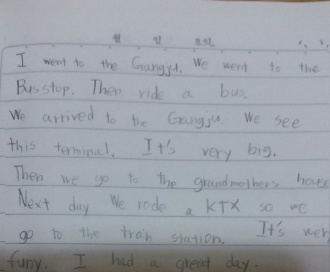 월 일 요일
I went to the Gangju. We went to the
Bus stop. Then ride a bus.
We arrived to the Gangju. We see
this terminal. It's very big.
Then we go to the grandmother's house
Next day We rode a KTX so we
go to the train station. It's very
funy. I had a great day.